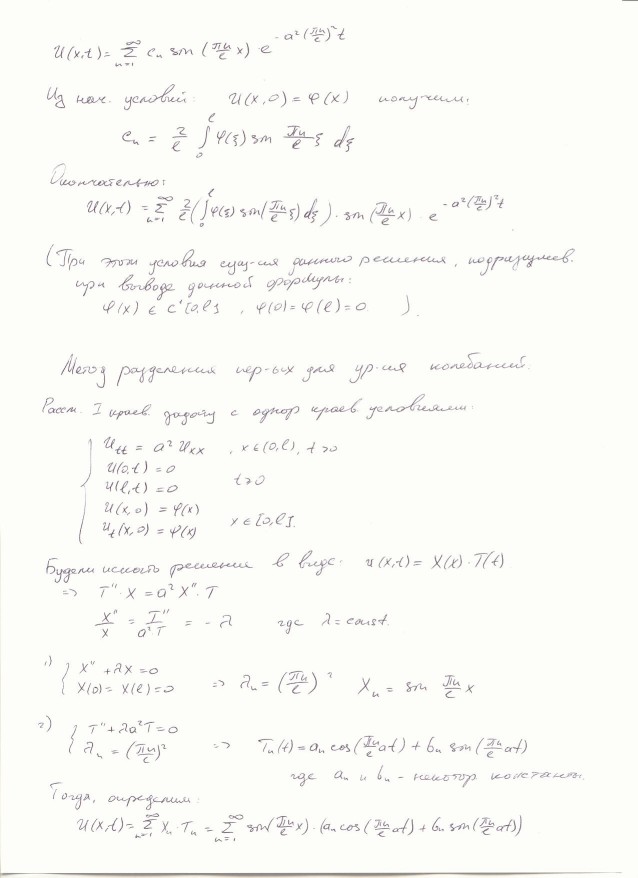 U(x,t) = Σ_{n=1}^{∞} c_n sin (πn/l x) · e^{-a²(πn/l)²t}
Из нач. условий: U(x,0) = φ(x) получим:
c_n = 2/l ∫_0^l φ(ξ) sin πn/l ξ dξ
Окончательно:
U(x,t) = Σ_{n=1}^{∞} 2/l (∫_0^l φ(ξ) sin(πn/l ξ) dξ) · sin(πn/l x) · e^{-a²(πn/l)²t}
(При этом условия сущ-ия данного решения, подразумев.
при выводе данной формулы:
φ(x) ∈ C¹[0,l], φ(0) = φ(l) = 0 ).
Метод разделения пер-ых для ур-ия колебаний.
Рассм. I краев. задачу с однор краев. условиями:
U_tt = a² U_xx , x ∈ (0,l), t > 0
U(0,t) = 0
U(l,t) = 0 t > 0
U(x,0) = φ(x)
U_t(x,0) = ψ(x) x ∈ [0,l].
Будем искать решение в виде: u(x,t) = X(x) · T(t)
=> T'' · X = a² X'' · T
X''/X = T''/a²T = - λ где λ = const.
1) { X'' + λX = 0
X(0) = X(l) = 0 => λ_n = (πn/l)² X_n = sin πn/l x
2) { T'' + λa²T = 0
λ_n = (πn/l)² => T_n(t) = a_n cos(πn/l at) + b_n sin(πn/l at)
где a_n и b_n - некотор константы.
Тогда, определим:
U(x,t) = Σ_{n=1}^{∞} X_n · T_n = Σ_{n=1}^{∞} sin(πn/l x) · (a_n cos(πn/l at) + b_n sin(πn/l at))